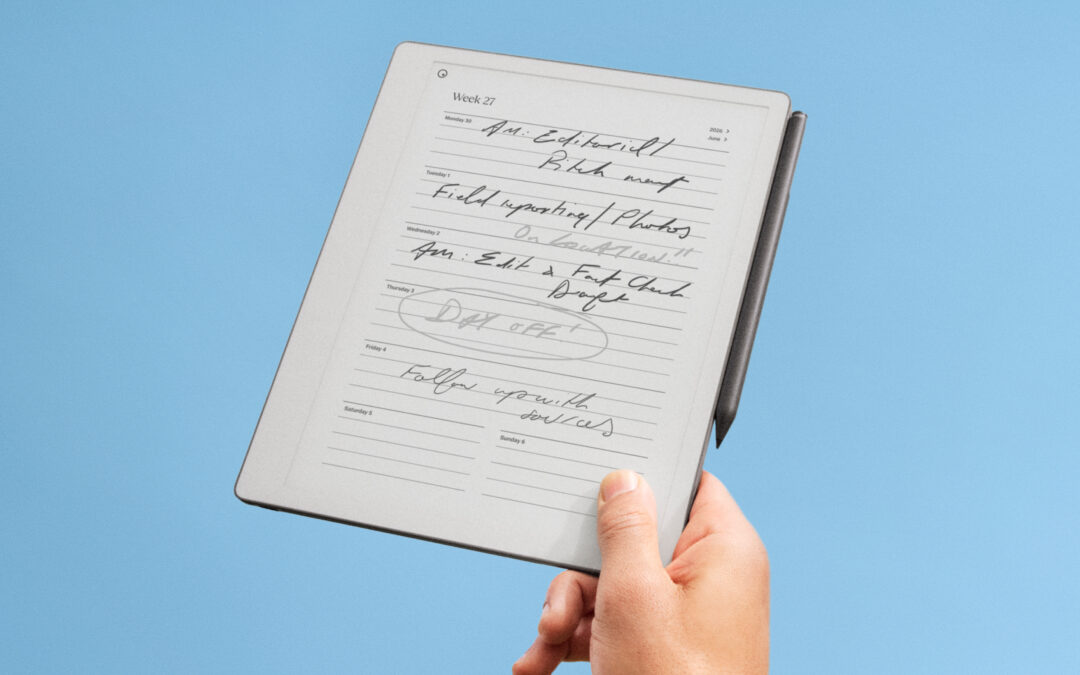 Week 27
2026 >
June >
Monday 30
AM: Editorial/
Pitch meet
Tuesday 1
Field reporting/Photos
On location!!
Wednesday 2
AM: Edit & Fact Check
Draft
Thursday 3
DAY OFF!
Friday 4
Follow up with
sources
Saturday 5
Sunday 6